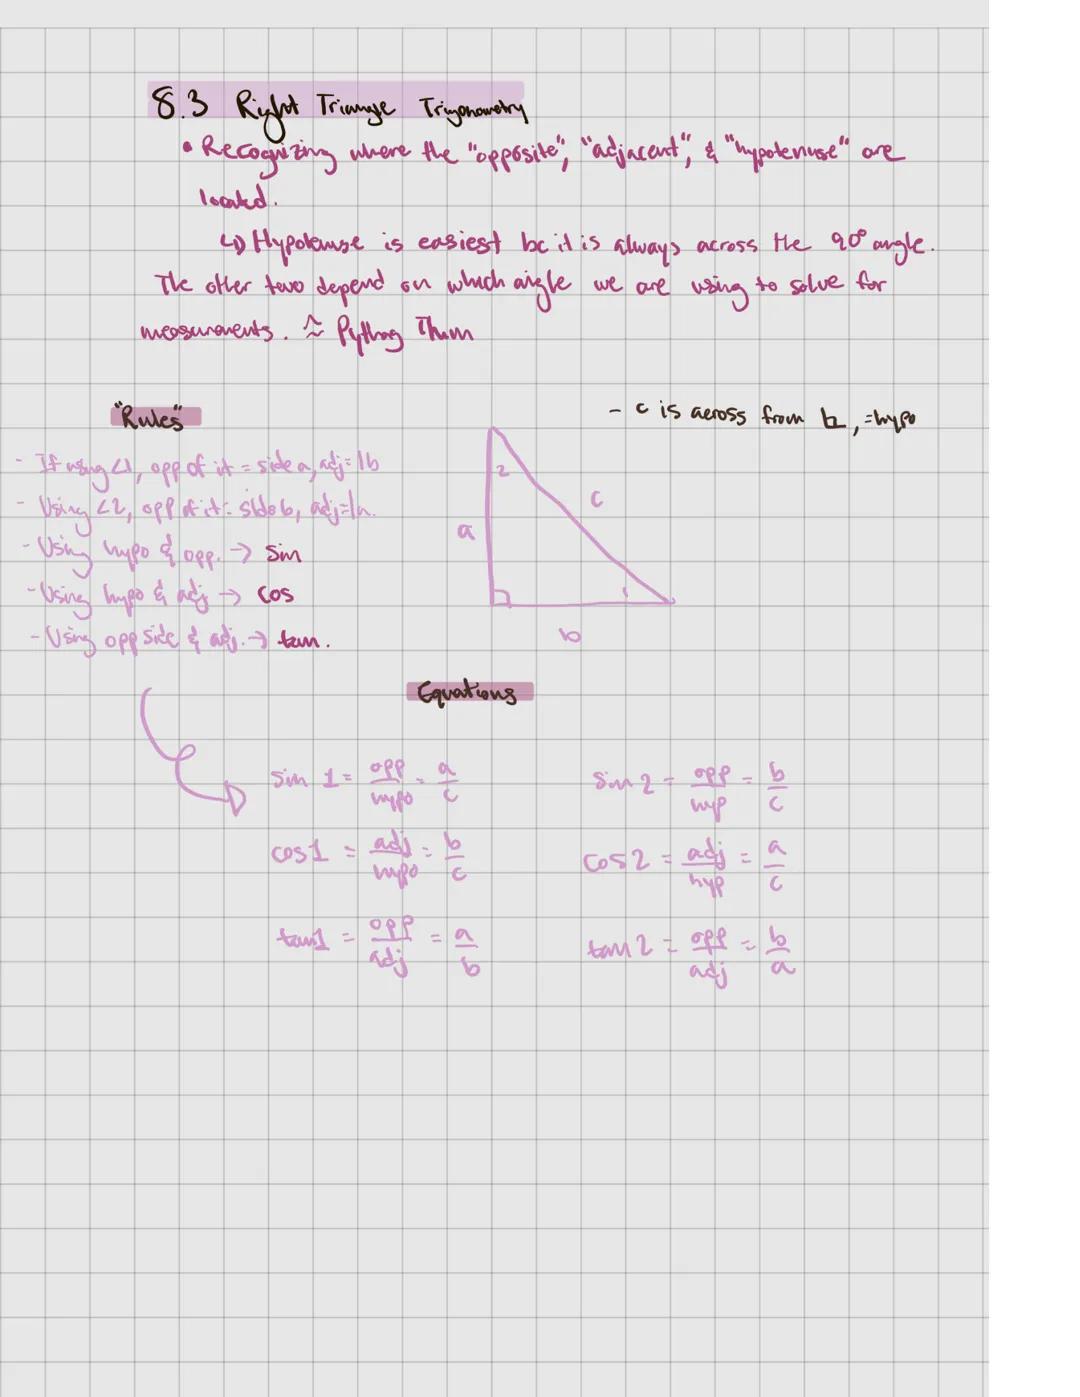 8.3 Right Triangle Trigonometry
• Recognizing where the "opposite", "adjacent", & "hypotenuse" are
located.
↳ Hypotenuse is easiest bc it is always across the 90° angle.
The other two depend on which angle we are using to solve for
measurements. Pythag Thm
"Rules"
- c is across from ⊾, =hypo
- If using ∠1, opp of it = side a, adj = b
- Using ∠2, opp of it = side b, adj = a.
- Using hypo & opp. → sin
- Using hypo & adj → cos
- Using opp side & adj. → tan.
2
c
a
1
b
Equations
sin 1 = opp/hypo = a/c
sin 2 = opp/hyp = b/c
cos 1 = adj/hypo = b/c
cos 2 = adj/hyp = a/c
tan 1 = opp/adj = a/b
tan 2 = opp/adj = b/a